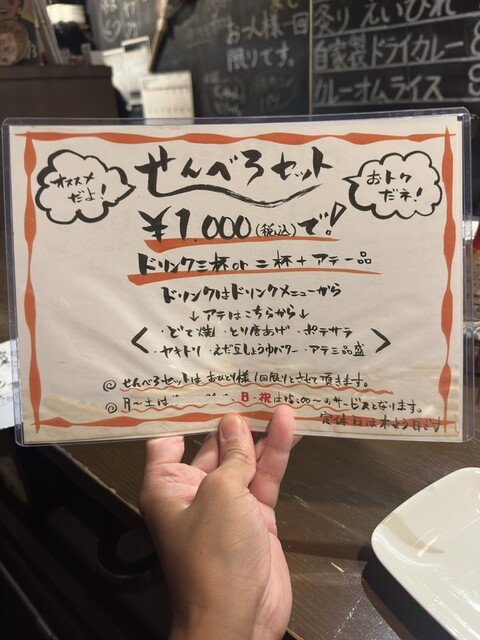 お一人様一回
限りです。
炙りえいひれ
自家製ドライカレー 8
カレーオムライス 9
オススメ
だよ!
せんべろセット
おトク
だネ!
¥1,000(税込)で!
ドリンク三杯or二杯+アテ一品
ドリンクはドリンクメニューから
↓アテはこちらから↓
・どて焼 ・とり唐あげ ・ポテサラ
・ヤキトリ ・えだ豆しょうゆバター ・アテ三品盛
◎せんべろセットはおひとり様1回限りとさせて頂きます。
◎月~土は 日・祝は15:00~のサービスとなります。
定休日は木よう日です